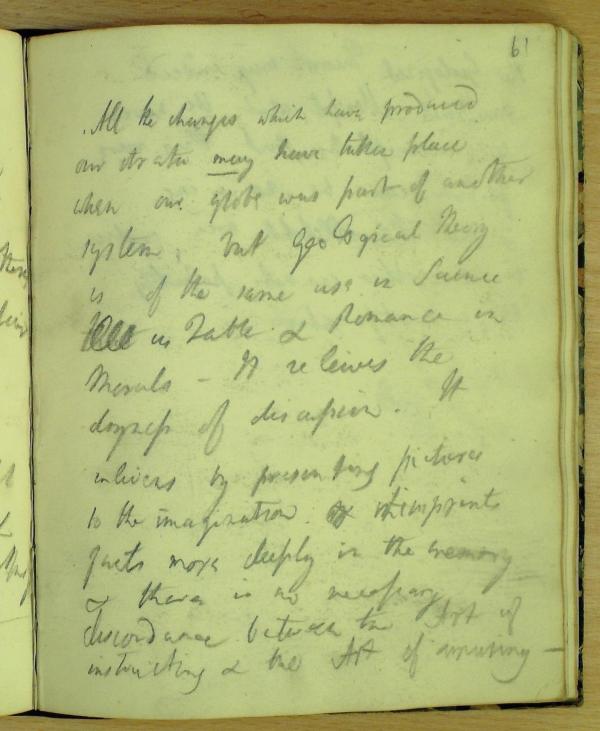 61
All the changes which have produced
our strata may have taken place
when our globe was part of another
system; but geological theory
is of the same use in Science
as Fable & Romance in
Morals – It relieves the
dryness of discussion. It
enlivens by presenting pictures
to the imagination. & it imprints
facts more deeply in the memory
& there is no necessary
discordance between the Art of
instructing & the Art of amusing –